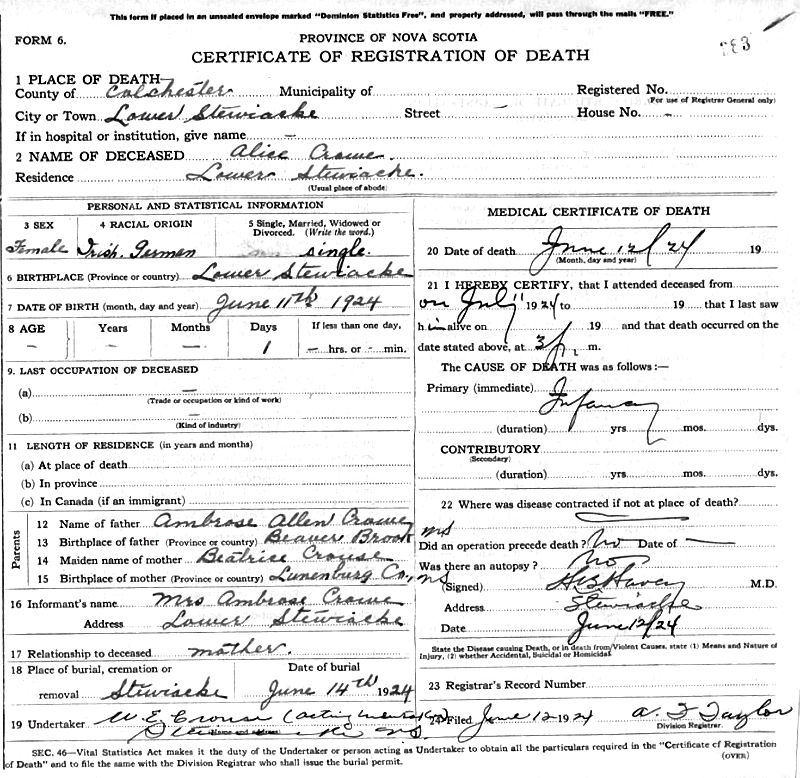 This form if placed in an unsealed envelope marked "Dominion Statistics Free", and properly addressed, will pass through the mails "FREE."
FORM 6.
PROVINCE OF NOVA SCOTIA
CERTIFICATE OF REGISTRATION OF DEATH
1 PLACE OF DEATH—
County of Colchester Municipality of Registered No.
(For use of Registrar General only)
City or Town Lower Stewiacke Street — House No. -
If in hospital or institution, give name —
2 NAME OF DECEASED Alice Crowe.
Residence Lower Stewiacke.
(Usual place of abode)
PERSONAL AND STATISTICAL INFORMATION
3 SEX 4 RACIAL ORIGIN 5 Single, Married, Widowed or Divorced. (Write the word.)
Female Irish. German single.
6 BIRTHPLACE (Province or country) Lower Stewiacke
7 DATE OF BIRTH (month, day and year) June 11th 1924
8 AGE Years Months Days If less than one day,
— — 1 — hrs. or - min.
9. LAST OCCUPATION OF DECEASED
(a) —
(Trade or occupation or kind of work)
(b) —
(Kind of industry)
11 LENGTH OF RESIDENCE (in years and months)
(a) At place of death
(b) In province
(c) In Canada (if an immigrant)
Parents
12 Name of father Ambrose Allen Crowe
13 Birthplace of father (Province or country) Beaver Brook NS
14 Maiden name of mother Beatrice Crouse
15 Birthplace of mother (Province or country) Lunenburg Co, NS
16 Informant's name Mrs Ambrose Crowe
Address Lower Stewiacke
17 Relationship to deceased mother.
18 Place of burial, cremation or removal Stewiacke Date of burial June 14th 1924
19 Undertaker W. E. Crouse (acting
(Name and address) Stewiacke NS.
MEDICAL CERTIFICATE OF DEATH
20 Date of death June 12/24 19
(Month, day and year)
21 I HEREBY CERTIFY, that I attended deceased from
on 11 1924 to 19 that I last saw
h im alive on 19 and that death occurred on the
date stated above, at 3 P. m.
The CAUSE OF DEATH was as follows:—
Primary (immediate) Infancy
(duration) yrs. mos. dys.
CONTRIBUTORY
(Secondary)
(duration) yrs. mos. dys.
22 Where was disease contracted if not at place of death?
Did an operation precede death? No Date of —
Was there an autopsy? No
(Signed) M.D.
Address Stewiacke
Date June 12/24
State the Disease causing Death, or in death from Violent Causes, state (1) Means and Nature of Injury, (2) whether Accidental, Suicidal or Homicidal.
23 Registrar's Record Number
24 Filed June 12 1924 A. F. Taylor
Division Registrar.
SEC. 46—Vital Statistics Act makes it the duty of the Undertaker or person acting as Undertaker to obtain all the particulars required in the "Certificate of Registration
of Death" and to file the same with the Division Registrar who shall issue the burial permit.
(OVER)